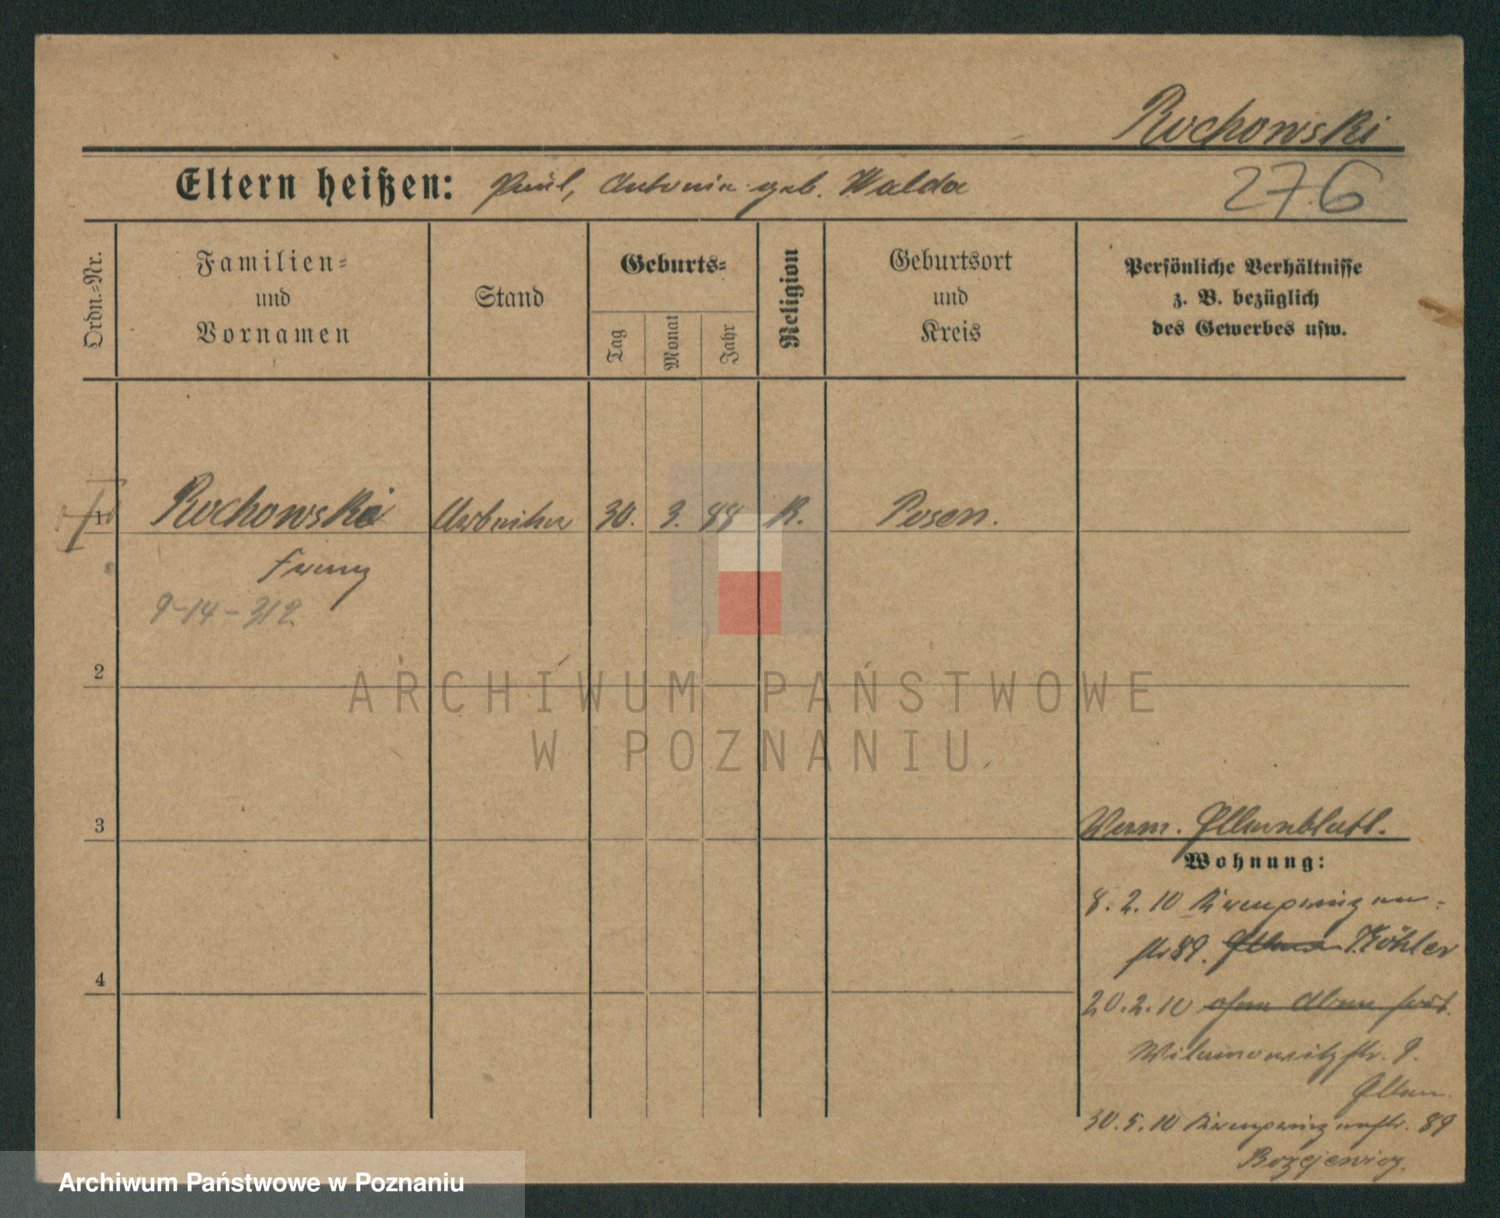 Rochowski
Eltern heißen: Paul, Antonie geb. Walda
276
Ordn.=Nr.
Familien=
und
Vornamen
Stand
Geburts=
Tag
Monat
Jahr
Religion
Geburtsort
und
Kreis
Persönliche Verhältnisse
z. B. bezüglich
des Gewerbes usw.
1 Rochowski Arbeiter 30. 3. 88 K. Posen.
Franz
9-14-312
2
3
Verm. Elternblatt.
Wohnung:
8. 2. 10 Kronprinzen=
str 89. Eltern Köhler
4
20. 2. 10 ohne Abm fort.
Wilamowitzstr. 9.
Eltern
30. 5. 10 Kronprinzenstr. 89
Bożejewicz.
ARCHIWUM PAŃSTWOWE
W POZNANIU
Archiwum Państwowe w Poznaniu